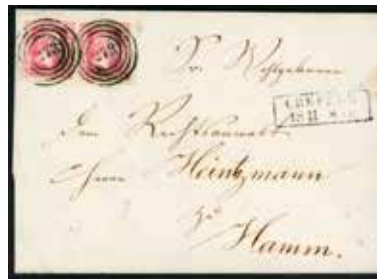 Sr. Wohlgeboren
CREFELD
18 11
Dem Rechtsanwalt
Herrn Heintzmann
zu
Hamm.